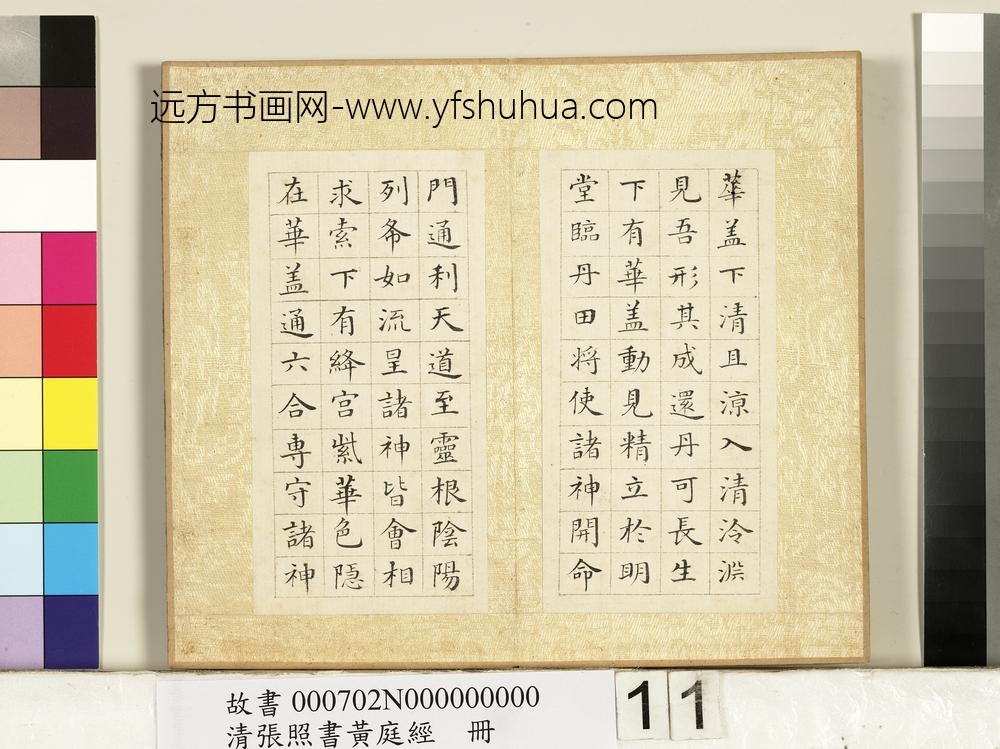 远方书画网-www.yfshuhua.com
華盖下清且涼入清泠淵
見吾形其成還丹可長生
下有華盖動見精立於明
堂臨丹田将使諸神開命
門通利天道至靈根陰陽
列布如流星諸神皆會相
求索下有絳宮紫華色隠
在華盖通六合專守諸神
故書 000702N000000000
清張照書黃庭經 冊
11